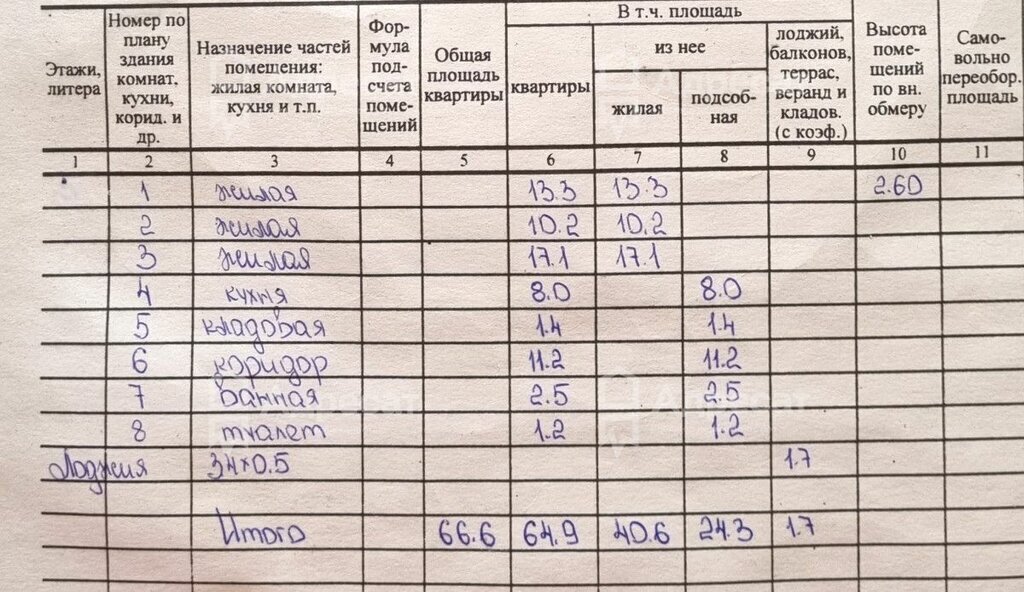 Этажи, литера | Номер по плану здания комнат, кухни, корид. и др. | Назначение частей помещения: жилая комната, кухня и т.п. | Формула подсчета помещений | Общая площадь квартиры | В т.ч. площадь | квартиры | из нее | жилая | подсобная | лоджий, балконов, террас, веранд и кладов. (с коэф.) | Высота помещений по вн. обмеру | Самовольно переобор. площадь
1 2 3 4 5 6 7 8 9 10 11
1 жилая 13.3 13.3 2.60
2 жилая 10.2 10.2
3 жилая 17.1 17.1
4 кухня 8.0 8.0
5 кладовая 1.4 1.4
6 коридор 11.2 11.2
7 ванная 2.5 2.5
8 туалет 1.2 1.2
Лоджия 3.4×0.5 1.7
Итого 66.6 64.9 40.6 24.3 1.7